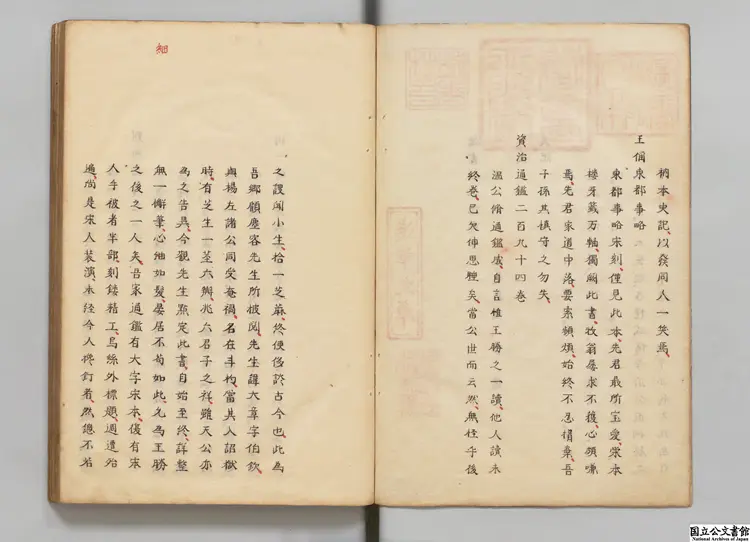 衲本史記以發同人一笑焉
王偁東都事略
東都事略宋刻僅見此本先君最所宝愛榮木
樓牙籖万軸獨闕此書牧翁屢求不獲心頗嗛
焉先君家道中落要索頻煩始終不忍捐棄吾
子孫其慎守之勿失
資治通鑑二百九十四卷
温公脩通鑑成自言惟王勝之一讀他人讀未
終卷已欠伸思睡矣當公世而云然無怪乎後
之謏聞小生拾一芝麻終便侈談古今也此為
吾鄉顧塵客先生所披閲先生諱大章字伯欽
與楊左諸公同受奄禍名在斗杓當其入詔獄
時有芝生一莖六瓣兆六君子之祥雖天公亦
為之告異今觀先生點定此書自始至終詳整
無一懈筆心細如髮晏居不苟如此允為王勝
之後之一人矣吾家通鑑有大字宋本復有宋
人手披者半部刻鏤精工烏絲外標題週遭殆
遍尚是宋人裝潢未經今人攙釘者然總不若
国立公文書館
National Archives of Japan